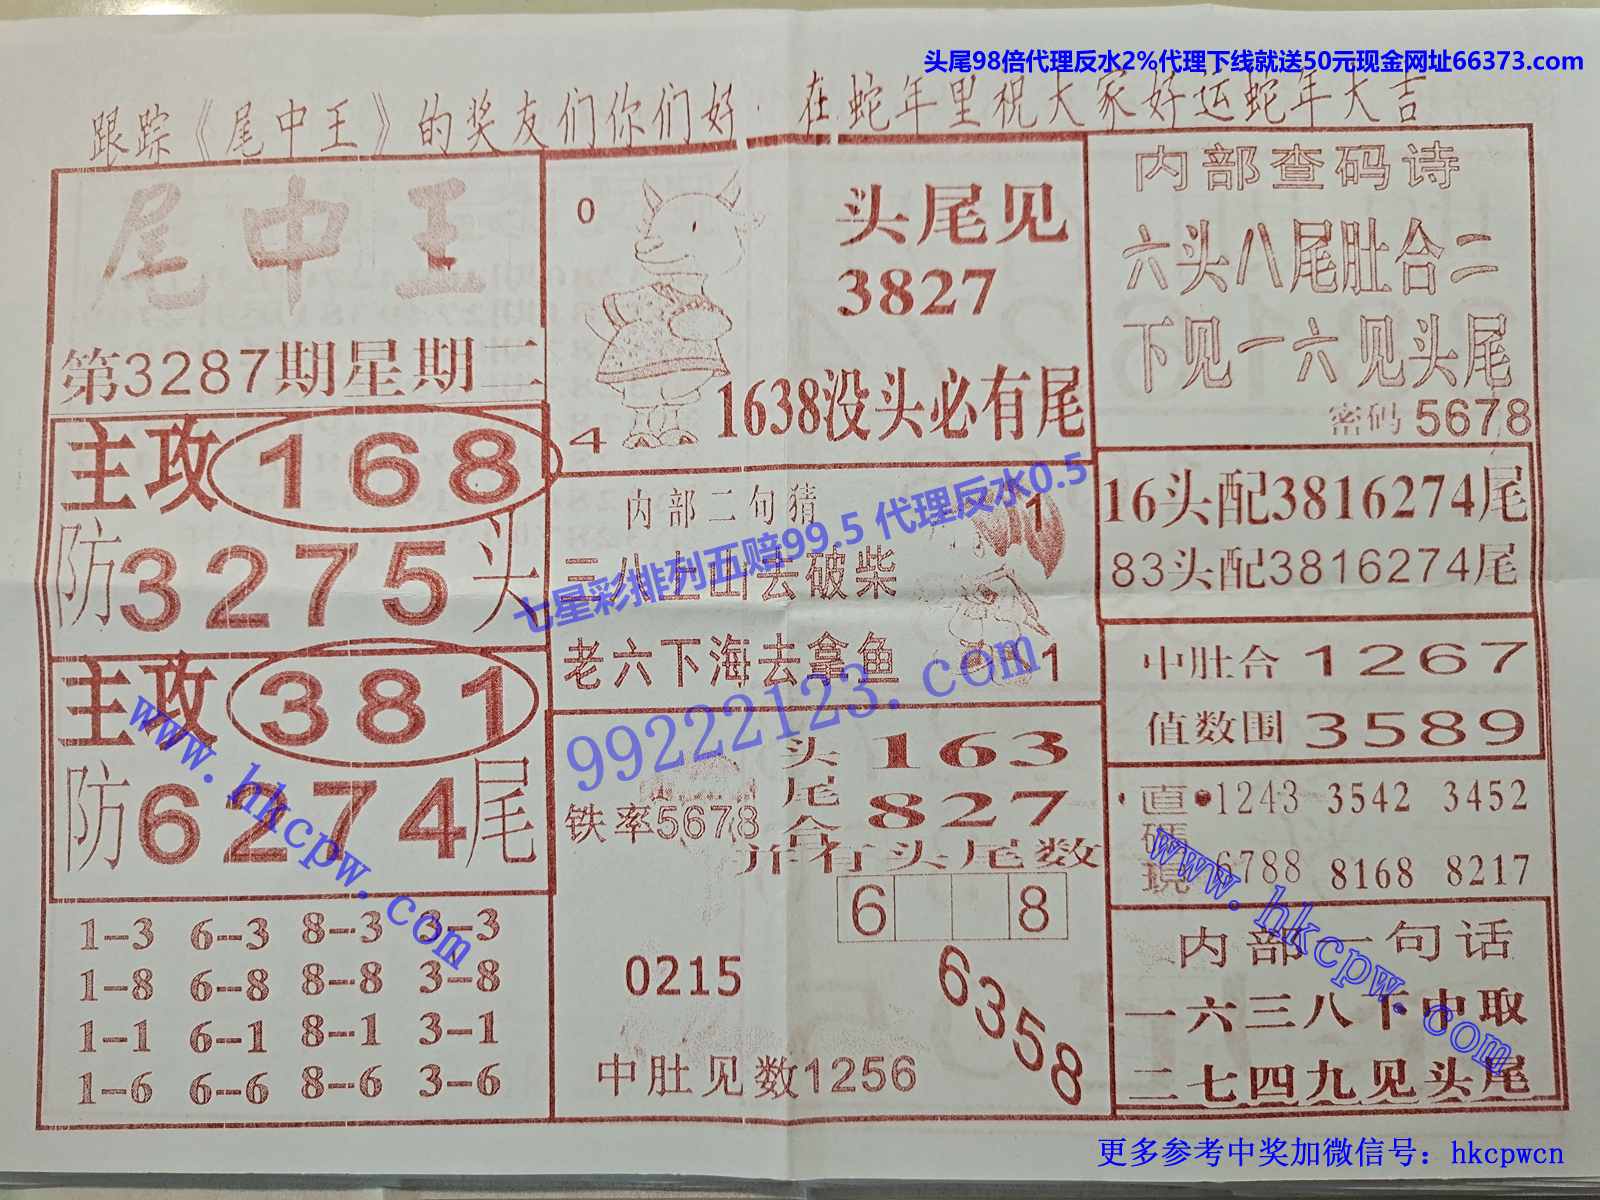 头尾98倍代理反水2%代理下线就送50元现金网址66373.com
跟踪《尾中王》的奖友们你们好．在蛇年里祝大家好运蛇年大吉
尾中王
第3287期星期二
主攻168
防3275头
主攻381
防6274尾
1--3 6--3 8--3 3--3
1--8 6--8 8--8 3--8
1--1 6--1 8--1 3--1
1--6 6--6 8--6 3--6
0
4
头尾见
3827
1638没头必有尾
内部二句猜
三八上山去破柴
老六下海去拿鱼
1
1
七星彩排列五赔99.5 代理反水0.5
99222123.com
铁率5678
头尾合
163
827
并有头尾数
6 8
0215
6358
中肚见数1256
内部查码诗
六头八尾肚合二
下见一六见头尾
密码5678
16头配3816274尾
83头配3816274尾
中肚合1267
值数围3589
直碼現
1243 3542 3452
6788 8168 8217
内部一句话
一六三八下中取
二七四九见头尾
www.hkcpw.com
www.hkcpw.com
更多参考中奖加微信号：hkcpwcn